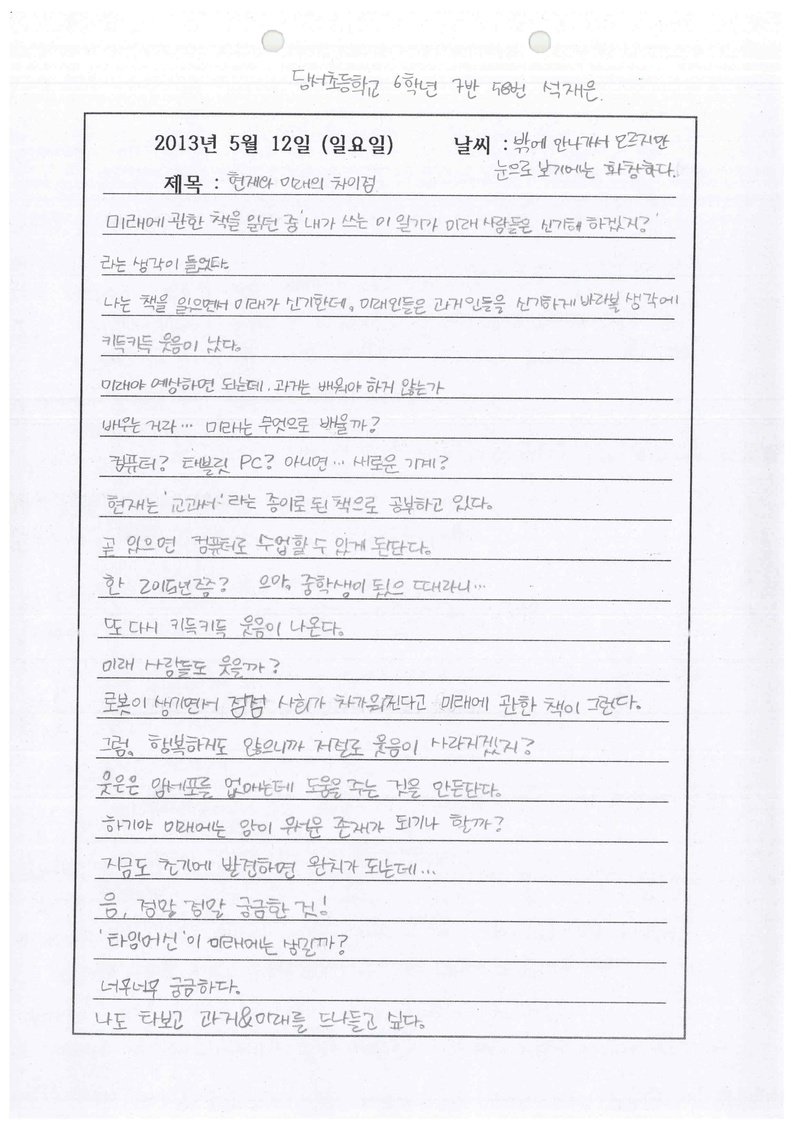 담서초등학교 6학년 7반 58번 석재은.
2013년 5월 12일 (일요일) 날씨 : 밖에 안나가서 모르지만
눈으로 보기에는 화창하다.
제목 : 현재와 미래의 차이점
미래에 관한 책을 읽던 중 '내가 쓰는 이 일기가 미래 사람들은 신기해 하겠지?'
라는 생각이 들었다.
나는 책을 읽으면서 미래가 신기한데, 미래인들은 과거인들을 신기하게 바라볼 생각에
키득키득 웃음이 났다.
미래야 예상하면 되는데. 과거는 배워야 하지 않는가
배우는 거라… 미래는 무엇으로 배울까?
컴퓨터? 태블릿 PC? 아니면… 새로운 기계?
현재는 '교과서'라는 종이로 된 책으로 공부하고 있다.
곧 있으면 컴퓨터로 수업할 수 있게 된단다.
한 2015년쯤? 으아, 중학생이 됬을 때라니…
또 다시 키득키득 웃음이 나온다.
미래 사람들도 웃을까?
로봇이 생기면서 점점 사회가 차가워진다고 미래에 관한 책이 그런다.
그럼, 행복하지도 않으니까 저절로 웃음이 사라지겠지?
웃음은 암세포를 없애는데 도움을 주는 것을 만든단다.
하기야 미래에는 암이 무서운 존재가 되기나 할까?
지금도 초기에 발견하면 완치가 되는데…
음, 정말 정말 궁금한 것!
'타임머신'이 미래에는 생길까?
너무너무 궁금하다.
나도 타보고 과거&미래를 드나들고 싶다.